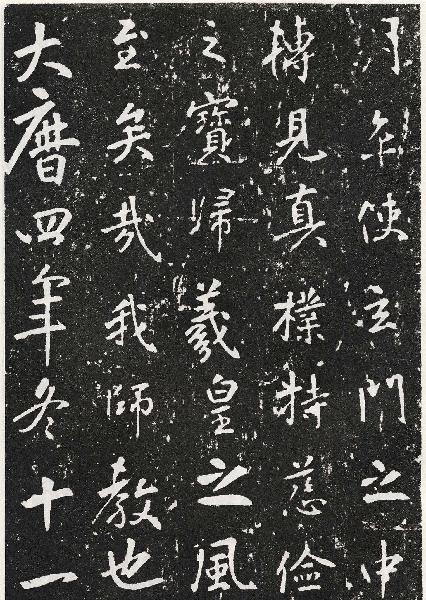 使玄門之沖
搏見真樸持慈儉
之寶歸羲皇之風
至矣哉我師教也
大曆四年冬十一